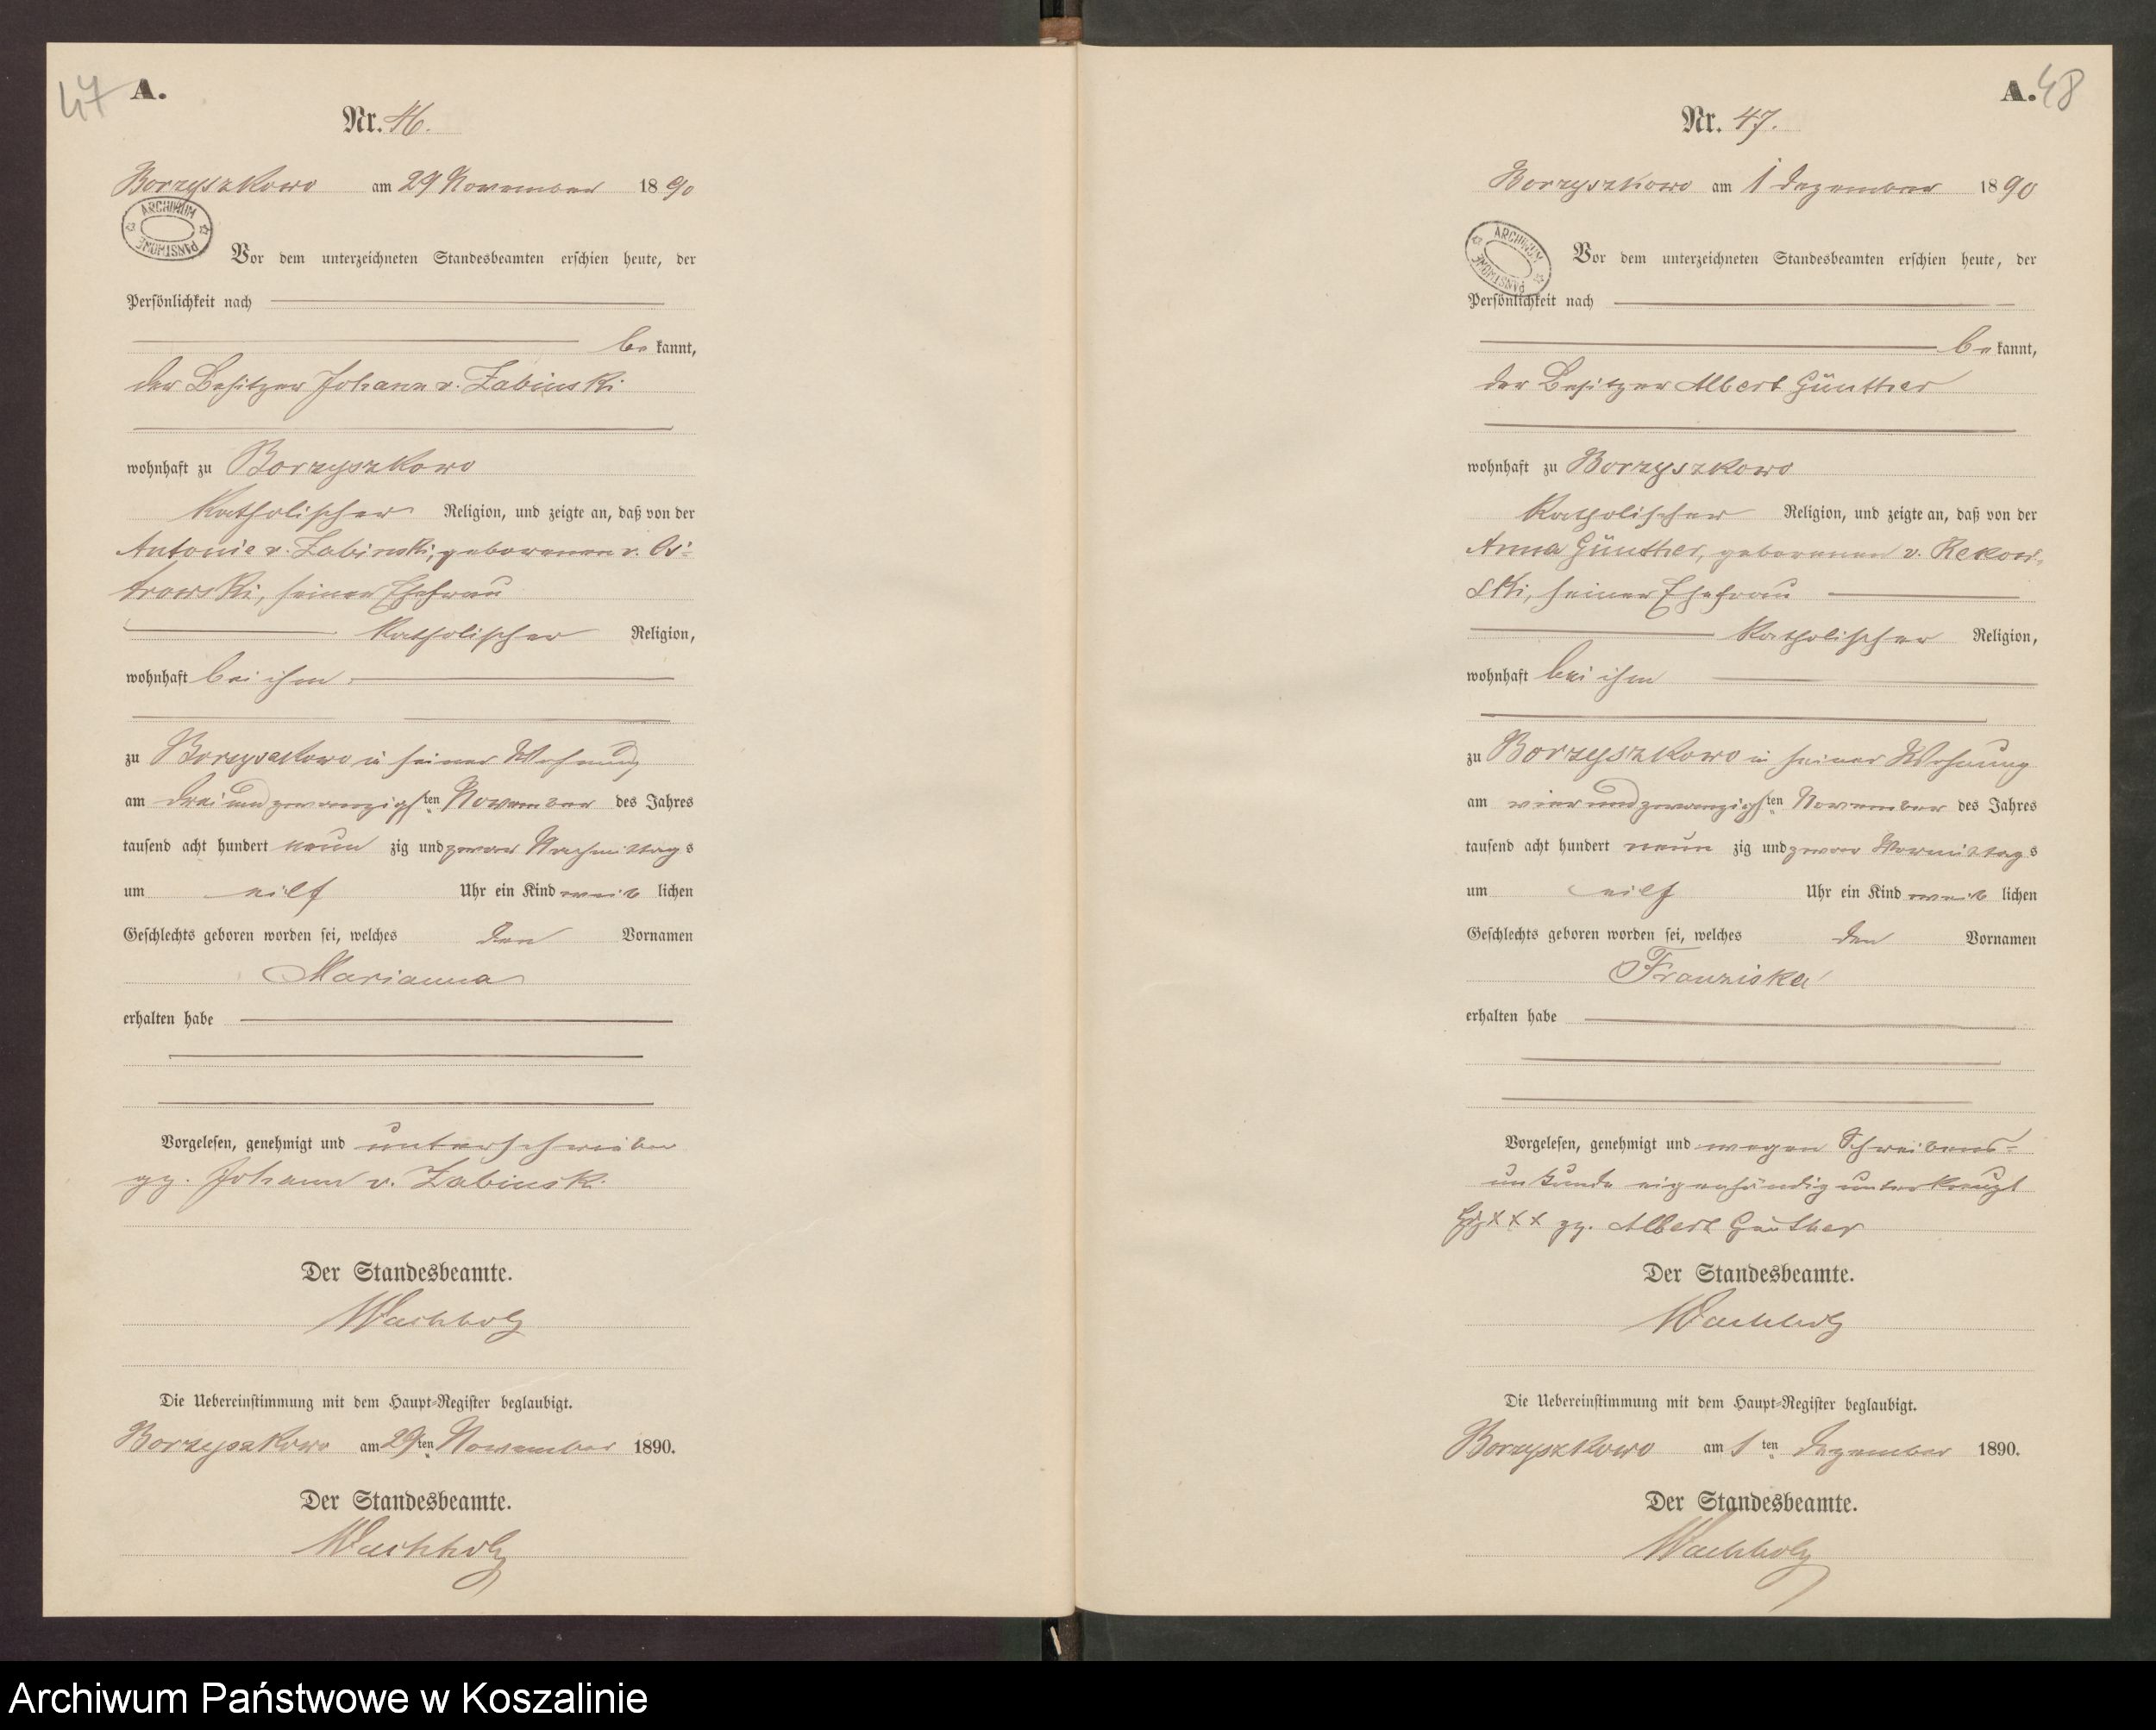 47 A.
Nr. 46.
Borzyszkowo am 29 November 1890
ARCHIWUM PAŃSTWOWE
Vor dem unterzeichneten Standesbeamten erschien heute, der
Persönlichkeit nach
bekannt,
der Besitzer Johann v. Zabinski
wohnhaft zu Borzyszkowo
Katholischer Religion, und zeigte an, daß von der
Antonie v. Zabinski, geborenen v. Os-
trowski, seiner Ehefrau
Katholischer Religion,
wohnhaft bei ihm
zu Borzyszkowo in seiner Wohnung
am dreiundzwanzigsten November des Jahres
tausend acht hundert neunzig und zwar Nachmittags
um eilf Uhr ein Kind weiblichen
Geschlechts geboren worden sei, welches den Vornamen
Marianna
erhalten habe
Vorgelesen, genehmigt und unterschrieben
gz. Johann v. Zabinski
Der Standesbeamte.
Wachholz
Die Uebereinstimmung mit dem Haupt-Register beglaubigt.
Borzyszkowo am 29ten November 1890.
Der Standesbeamte.
Wachholz
A. 48
Nr. 47.
Borzyszkowo am 1 Dezember 1890
ARCHIWUM PAŃSTWOWE
Vor dem unterzeichneten Standesbeamten erschien heute, der
Persönlichkeit nach
bekannt,
der Besitzer Albert Günther
wohnhaft zu Borzyszkowo
Katholischer Religion, und zeigte an, daß von der
Anna Günther, geborenen v. Rekow-
ski, seiner Ehefrau
Katholischer Religion,
wohnhaft bei ihm
zu Borzyszkowo in seiner Wohnung
am vierundzwanzigsten November des Jahres
tausend acht hundert neunzig und zwar Vormittags
um eilf Uhr ein Kind weiblichen
Geschlechts geboren worden sei, welches den Vornamen
Franziska
erhalten habe
Vorgelesen, genehmigt und wegen Schreibens-
unkunde eigenhändig unterkreuzt
xxx gz. Albert Günther
Der Standesbeamte.
Wachholz
Die Uebereinstimmung mit dem Haupt-Register beglaubigt.
Borzyszkowo am 1ten Dezember 1890.
Der Standesbeamte.
Wachholz
Archiwum Państwowe w Koszalinie